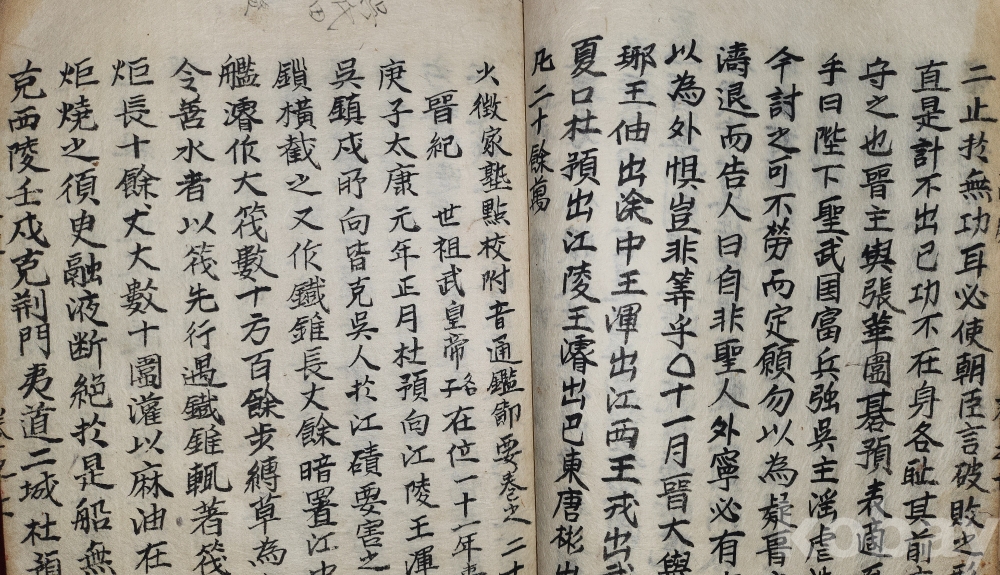 二止於無功耳必使朝臣言破敗之
直是計不出已功不在身各耻其前
守之也晋主與張華圍碁預表適至
手曰陛下聖武国富兵强吳主淫虐
今討之可不勞而定願勿以為疑晋
濤退而告人曰自非聖人外寧必有
以為外惧豈非筭乎〇十一月晋大擧
琊王伷出涂中王渾出江西王戎出武
夏口杜預出江陵王濬出巴東唐彬出
凡二十餘萬
火徵家塾點校附音通鑑節要卷之二十
晉紀 世祖武皇帝 在位一十一年
庚子太康元年正月杜預向江陵王渾
吳鎮戍所向皆克吳人於江磧要害之
鎖橫截之又作鐵錐長丈餘暗置江中
艦濬作大筏數十方百餘步縛草為
令善水者以筏先行遇鐵錐輒著筏
炬長十餘丈大數十圍灌以麻油在
炬燒之須臾融液断絕於是船無
克西陵壬戍克荆門夷道二城杜預
kobay